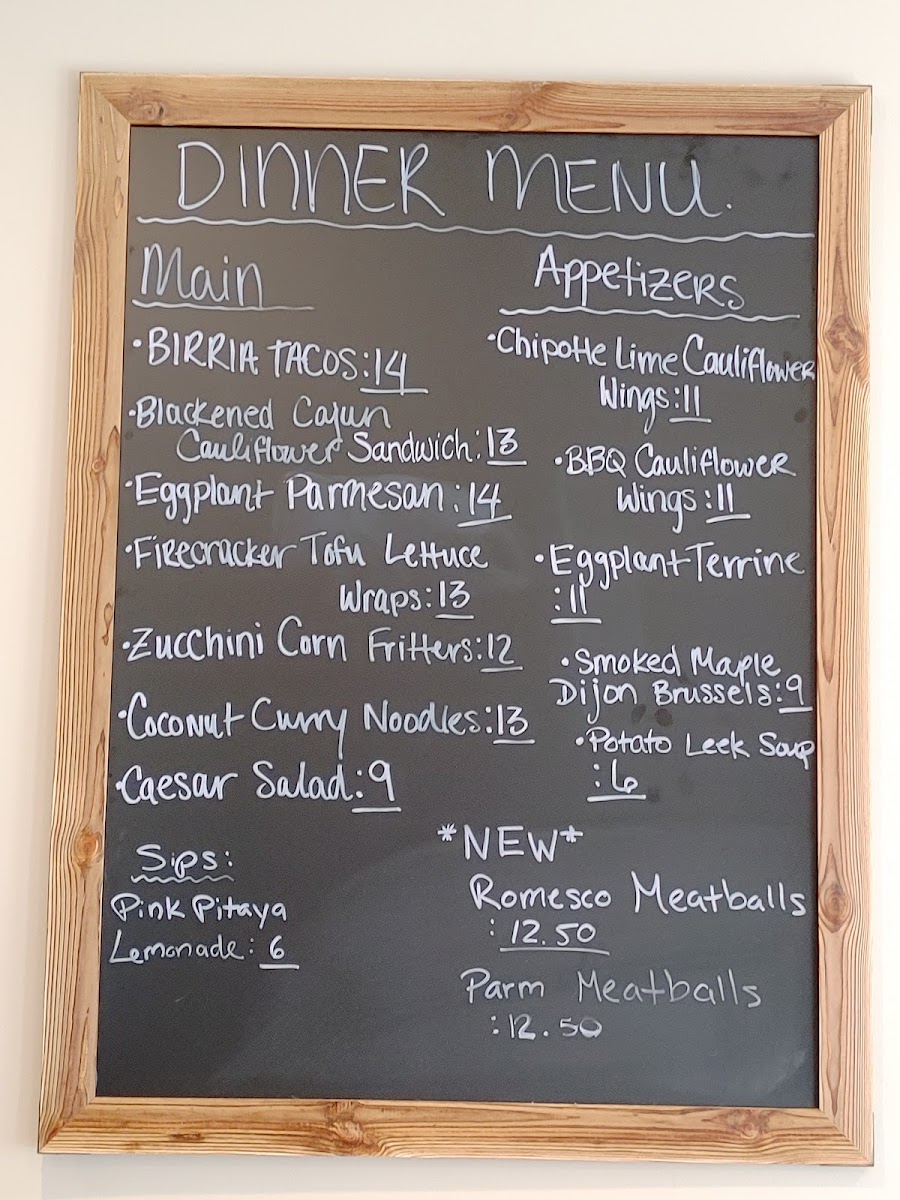 DINNER MENU.
Main
• BIRRIA TACOS: 14
• Blackened Cajun
Cauliflower Sandwich: 13
• Eggplant Parmesan: 14
• Firecracker Tofu Lettuce
Wraps: 13
• Zucchini Corn Fritters: 12
• Coconut Curry Noodles: 13
• Caesar Salad: 9
Sips:
Pink Pitaya
Lemonade: 6
Appetizers
• Chipotle Lime Cauliflower
Wings: 11
• BBQ Cauliflower
Wings: 11
• Eggplant Terrine
: 11
• Smoked Maple
Dijon Brussels: 9
• Potato Leek Soup
: 6
*NEW*
Romesco Meatballs
: 12.50
Parm Meatballs
: 12.50